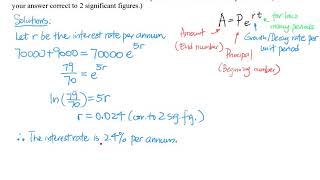 your answer correct to 2 significant figures.)
Solutions:
Let r be the interest rate per annum.
70000+9000 = 70000 e^5r
79/70 = e^5r
ln(79/70) = 5r
r = 0.024 (cor. to 2 sig. fig.)
∴ The interest rate is 2.4% per annum.
A = Pe^rt
for how
many periods
Amount
(End number)
Growth/Decay rate per
unit period
Principal
(Beginning number)